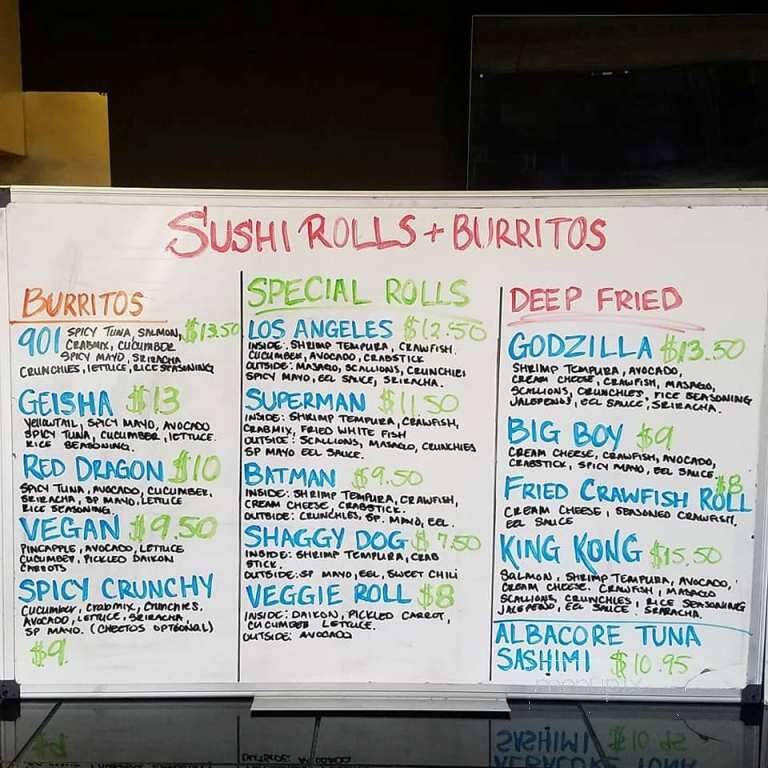 SUSHI ROLLS + BURRITOS
BURRITOS
901 SPICY TUNA, SALMON, $13.50
CRABMIX, CUCUMBER
SPICY MAYO, SRIRACHA
CRUNCHIES, LETTUCE, RICE SEASONING
GEISHA $13
YELLOWTAIL, SPICY MAYO, AVOCADO
SPICY TUNA, CUCUMBER, LETTUCE.
RICE SEASONING.
RED DRAGON $10
SPICY TUNA, AVOCADO, CUCUMBER,
SRIRACHA, SP MAYO, LETTUCE
RICE SEASONING.
VEGAN $9.50
PINEAPPLE, AVOCADO, LETTUCE
CUCUMBER, PICKLED DAIKON
CARROTS
SPICY CRUNCHY
CUCUMBER, CRABMIX, CRUNCHIES.
AVOCADO, LETTUCE, SRIRACHA
SP MAYO. (CHEETOS OPTIONAL)
$9.
SPECIAL ROLLS
LOS ANGELES $12.50
INSIDE: SHRIMP TEMPURA, CRAWFISH.
CUCUMBER, AVOCADO, CRABSTICK
OUTSIDE: MASAGO, SCALLIONS, CRUNCHIES
SPICY MAYO, EEL SAUCE, SRIRACHA.
SUPERMAN $11.50
INSIDE: SHRIMP TEMPURA, CRAWFISH,
CRABMIX, FRIED WHITE FISH
OUTSIDE: SCALLIONS, MASAGO, CRUNCHIES
SP MAYO EEL SAUCE.
BATMAN $9.50
INSIDE: SHRIMP TEMPURA, CRAWFISH,
CREAM CHEESE, CRABSTICK.
OUTSIDE: CRUNCHIES, SP. MAYO, EEL.
SHAGGY DOG $7.50
INSIDE: SHRIMP TEMPURA, CRAB
STICK.
OUTSIDE: SP MAYO, EEL, SWEET CHILI
VEGGIE ROLL $8
INSIDE: DAIKON, PICKLED CARROT,
CUCUMBER LETTUCE.
OUTSIDE: AVOCADO
DEEP FRIED
GODZILLA $13.50
SHRIMP TEMPURA, AVOCADO,
CREAM CHEESE, CRAWFISH, MASAGO,
SCALLIONS, CRUNCHIES, RICE SEASONING
JALEPENOS, EEL SAUCE, SRIRACHA.
BIG BOY $9
CREAM CHEESE, CRAWFISH, AVOCADO,
CRABSTICK, SPICY MAYO, EEL SAUCE.
FRIED CRAWFISH ROLL $8
CREAM CHEESE, SEASONED CRAWFISH,
EEL SAUCE
KING KONG $15.50
SALMON, SHRIMP TEMPURA, AVOCADO,
CREAM CHEESE, CRAWFISH, MASAGO
SCALLIONS, CRUNCHIES, RICE SEASONING
JALEPENO, EEL SAUCE. SRARACHA.
ALBACORE TUNA
SASHIMI $10.95